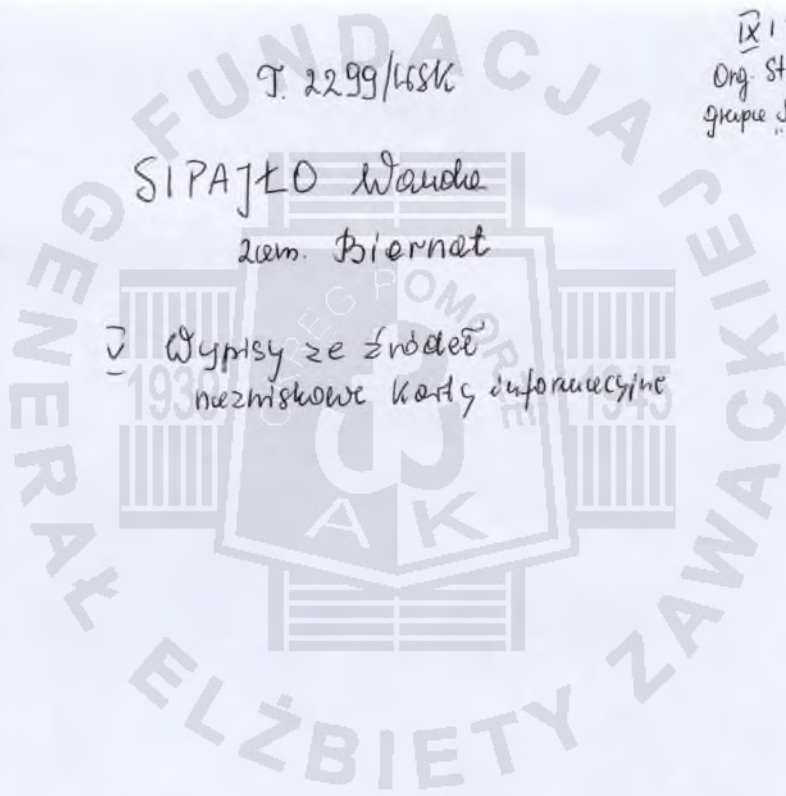 T. 2299/WSK
IX 1
Org. St
grupie
SIPAJŁO Wanda
zam. Biernat
V Wypisy ze źródeł
nazwiskowe karty informacyjne
FUNDACJA GENERAŁ ELŻBIETY ZAWACKIEJ
OKRĘG POMORZE
1939 1945
AK